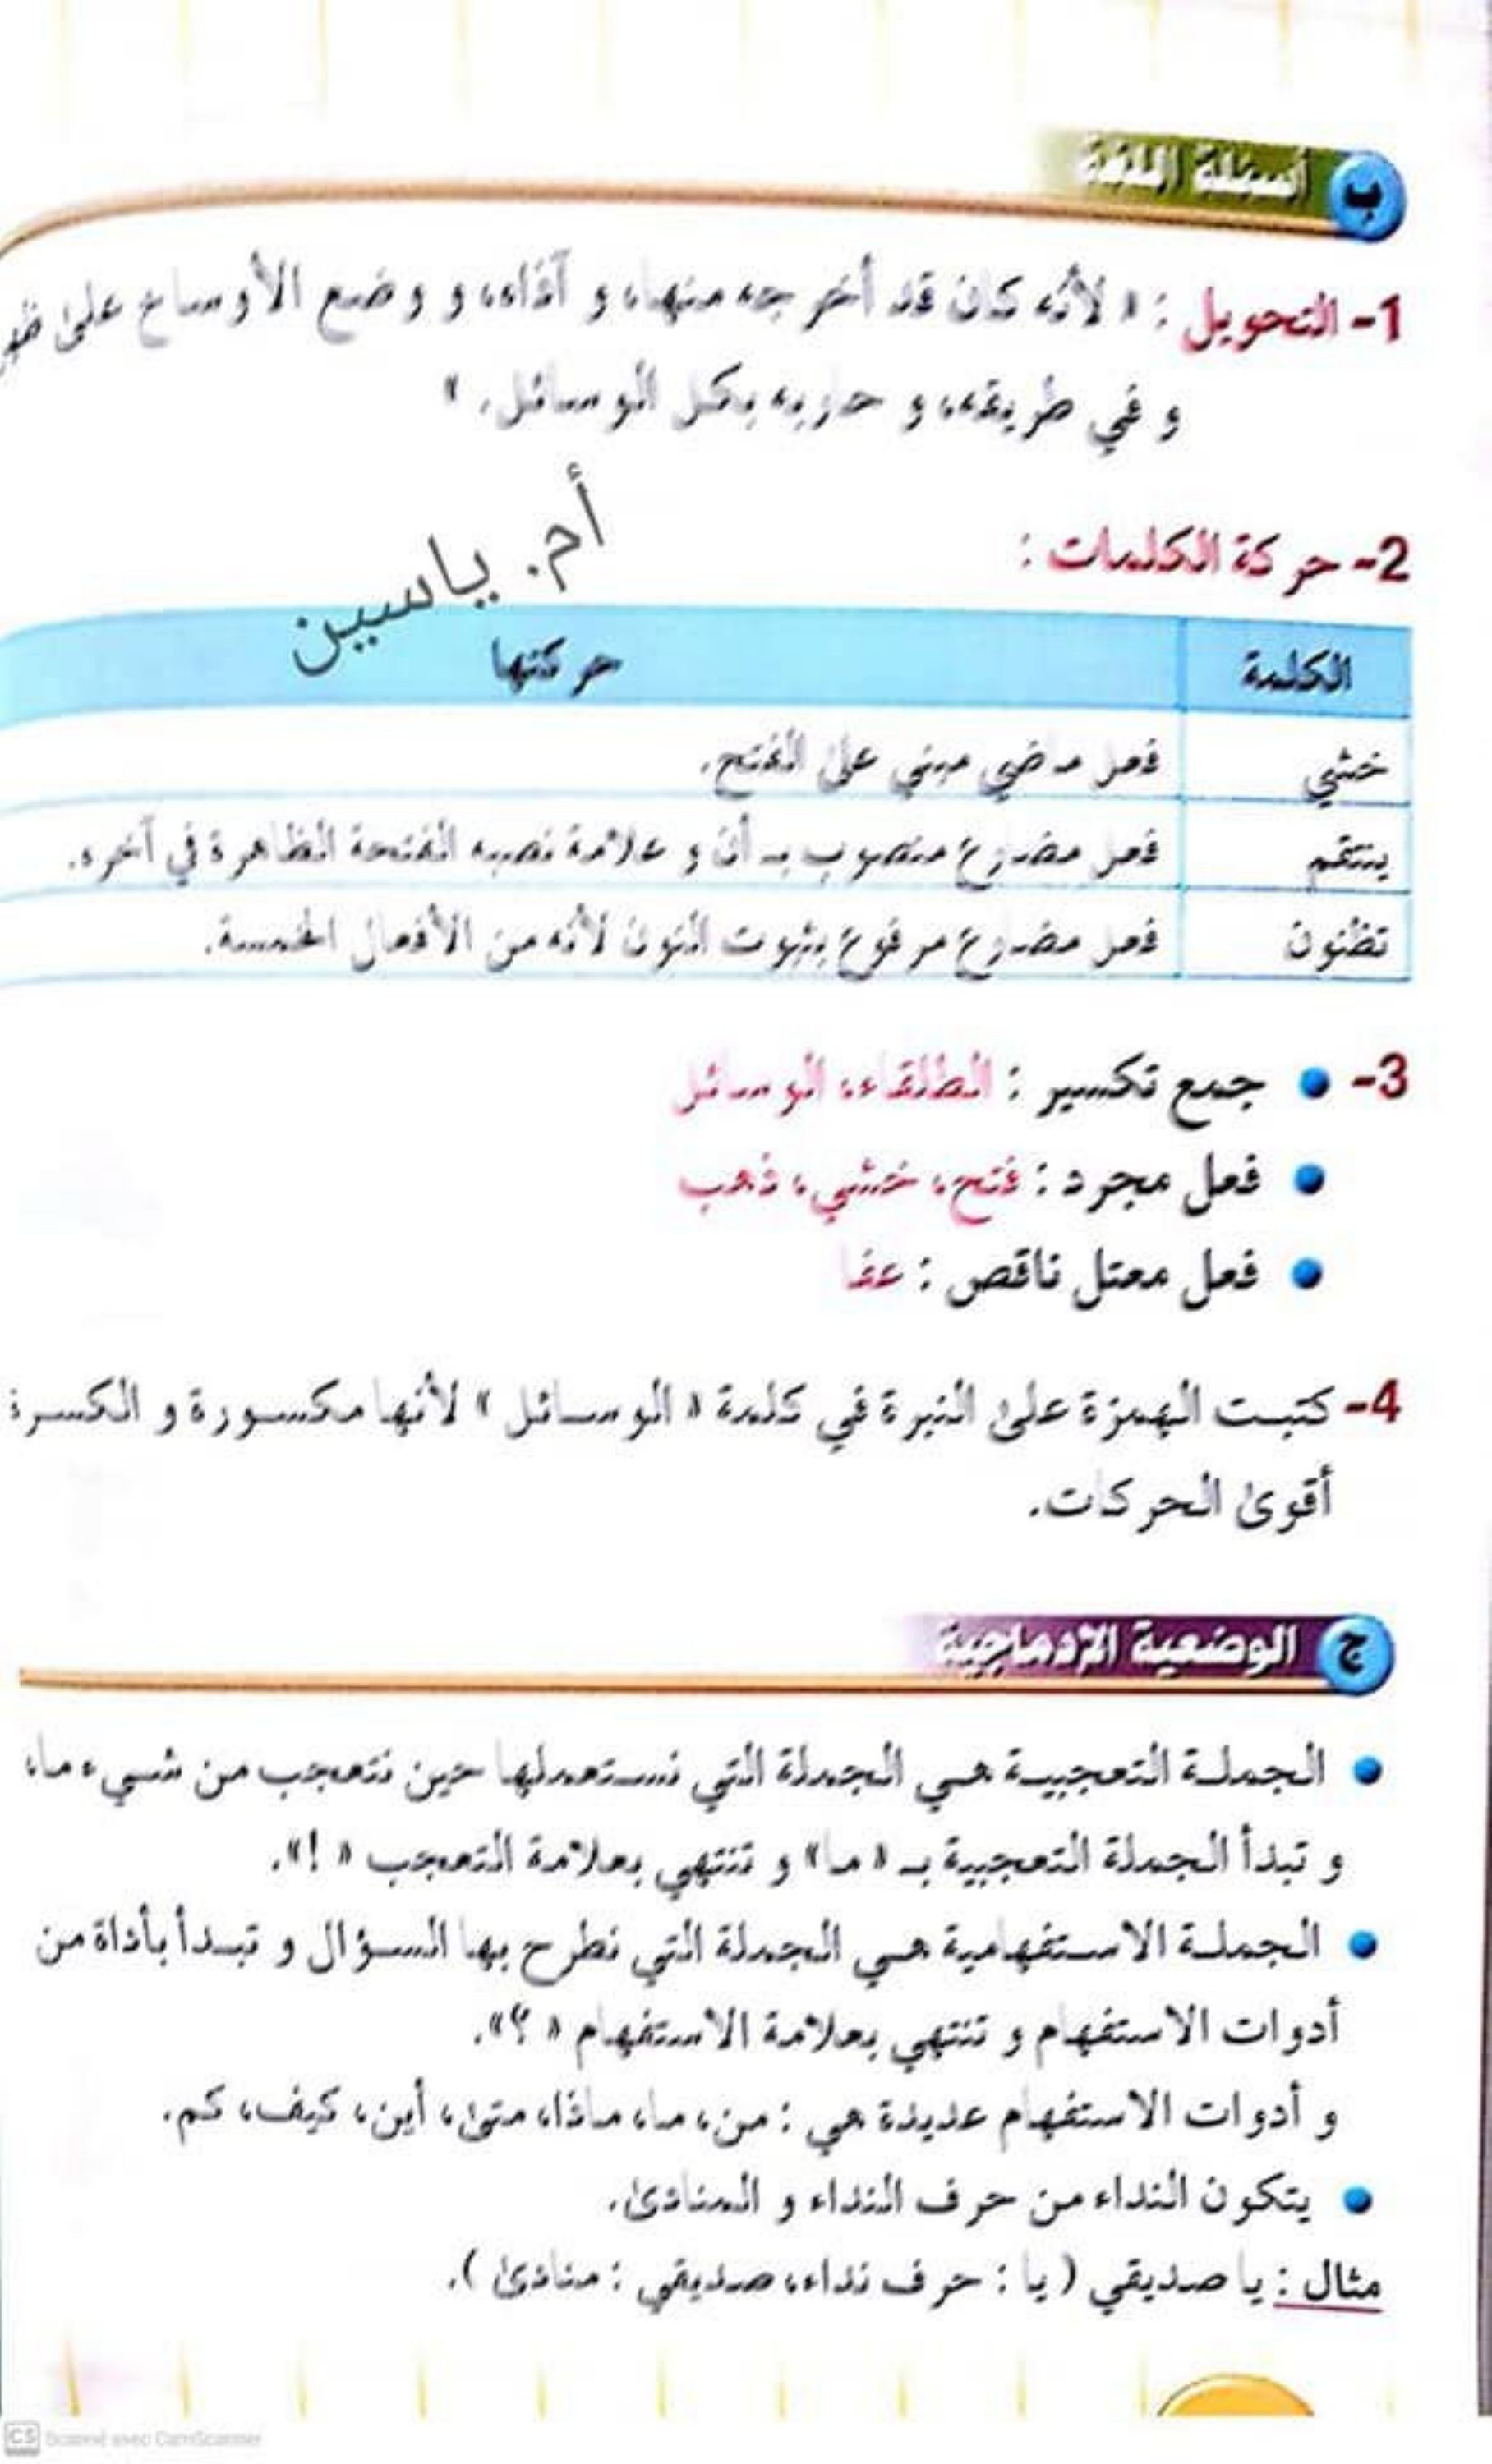 ب أسئلة اللغة
1- التحويل : « لأنه كان قد أخرجه منها، و آذاه، و وضع الأوساخ على
و في طريقه، و حاربه بكل الوسائل. »
أم. ياسين
2- حركة الكلمات :
الكلمة حركتها
خشي فعل ماضي مبني على الفتح.
ينتقم فعل مضارع منصوب بـ أن و علامة نصبه الفتحة الظاهرة في آخره.
تظنون فعل مضارع مرفوع بثبوت النون لأنه من الأفعال الخمسة.
3- ● جمع تكسير : الطلقاء، الوسائل
● فعل مجرد : فتح، خشي، ذهب
● فعل معتل ناقص : عفا
4- كتبت الهمزة على النبرة في كلمة « الوسائل » لأنها مكسورة و الكسرة
أقوى الحركات.
ج الوضعية الإدماجية
● الجملة التعجبية هي الجملة التي نستعملها حين نتعجب من شيء ما،
و تبدأ الجملة التعجبية بـ « ما» و تنتهي بعلامة التعجب « !».
● الجملة الاستفهامية هي الجملة التي نطرح بها السؤال و تبدأ بأداة من
أدوات الاستفهام و تنتهي بعلامة الاستفهام « ؟».
و أدوات الاستفهام عديدة هي : من، ما، ماذا، متى، أين، كيف، كم.
● يتكون النداء من حرف النداء و المنادى.
مثال : يا صديقي ( يا : حرف نداء، صديقي : منادى ).
CS Scanné avec CamScanner